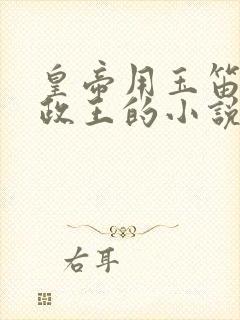 皇帝用玉笛
政王的小說
右耳